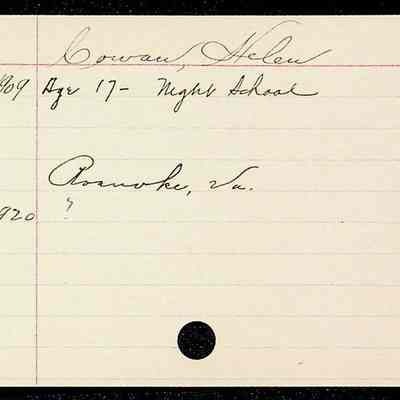 Cowan, Helen
1909 Age 17- Night School
Roanoke, Va.
1920 "